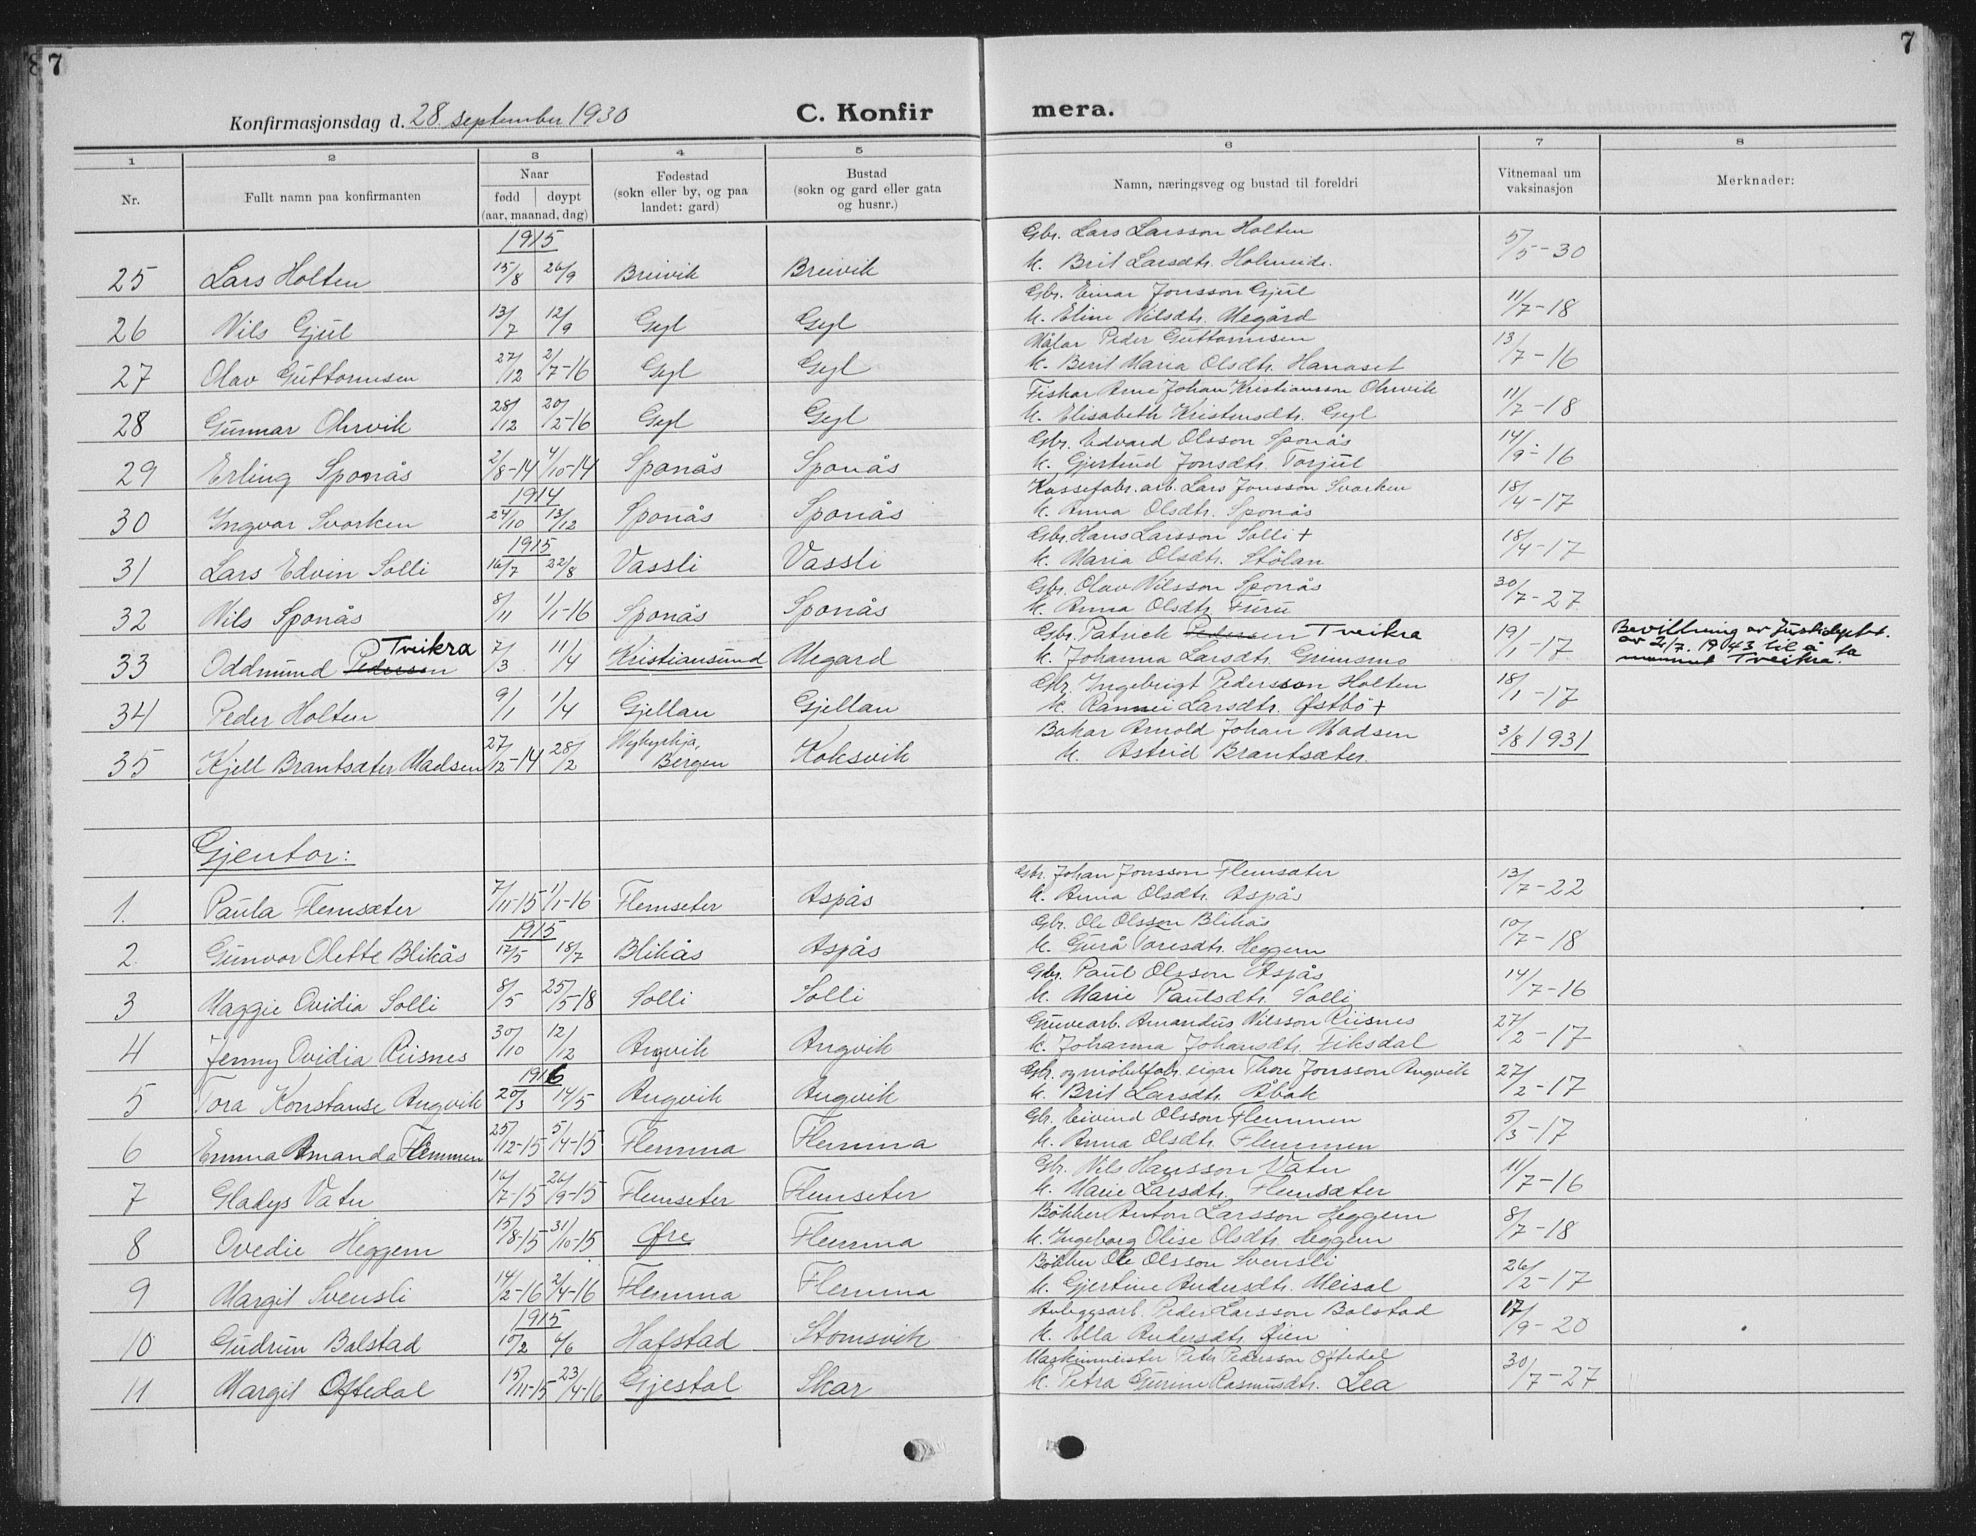 7
7
Konfirmasjonsdag d. 28. september 1930
C. Konfir
mera.
1 2 3 4 5 6 7 8
Nr.
Fullt namn paa konfirmanten
Naar
fødd døypt
(aar, maanad, dag)
Fødestad
(sokn eller by, og paa
landet: gard)
Bustad
(sokn og gard eller gata
og husnr.)
Namn, næringsveg og bustad til foreldri
Vitnemaal um
vaksinasjon
Merknader:
1915
Gbr. Lars Larsson Holten
25 Lars Holten 15/8 26/9 Breivik Breivik k. Brit Larsdtr. Holmeide. 5/5-30
Gbr. Einar Jonsson Gjul
26 Nils Gjul 13/7 12/9 Gyl Gyl k. Eline Nilsdtr. Megård 11/7-18
Målar Peder Guttormsen
27 Olav Guttormsen 27/12 2/7-16 Gyl Gyl k. Berit Maria Olsdtr. Hanaset 13/7-16
Fiskar Arne Johan Kristiansson Ohrvik
28 Gunnar Ohrvik 28/12 20/2-16 Gyl Gyl k. Elisabeth Kristensdtr. Gyl 11/7-18
Gbr. Edvard Olsson Sponås
29 Erling Sponås 2/8-14 4/10-14 Sponås Sponås k. Gjertrud Jonsdtr. Torjul 14/9-16
1914
Kassefabr. arb. Lars Jonsson Svorken
30 Ingvar Svorken 24/10 13/12 Sponås Sponås k. Anna Olsdtr. Sponås 18/4-17
1915
Gbr. Hans Larsson Solli +
31 Lars Edvin Solli 16/7 22/8 Vassli Vassli k. Maria Olsdtr. Stölan 18/4-17
Gbr. Olav Nilsson Sponås
32 Nils Sponås 8/11 1/1-16 Sponås Sponås k. Anna Olsdtr. Furu 30/7-27
Tveikra
Gbr. Patrick Pedersen Tveikra
33 Oddmund Pedersen 7/3 11/4 Kristiansund Megard k. Johanna Larsdtr. Grimsmo 19/1-17
Bevillning av Justisdeptet.
av 2/7. 1943 til å ta
namnet Tveikra.
Gbr. Ingebrigt Pedersson Holten
34 Peder Holten 9/1 1/4 Gjellan Gjellan k. Rannei Larsdtr. Østbö + 18/1-17
Bakar Arnold Johan Madsen
35 Kjell Brantsæter Madsen 27/12-14 28/2 Nykyrkja, Bergen Koksvik k. Astrid Brantsæter 3/8 1931
Gjentor:
Gbr. Johan Jonsson Flemsæter
1. Paula Flemsæter 7/11-15 1/1-16 Flemseter Aspås k. Anna Olsdtr. Aspås 13/7-22
1915
Gbr. Ole Olsson Blikås
2 Gunvor Olette Blikås 17/5 18/7 Blikås Aspås k. Gurå Toresdtr. Heggem 10/7-18
Gbr. Paul Olsson Aspås
3 Maggie Ovidia Solli 8/5 25/5-18 Solli Solli k. Marie Paulsdtr. Solli 14/7-16
Gruvearb. Amandus Nilsson Riisnes
4 Jenny Ovidia Riisnes 30/10 12/12 Angvik Angvik k. Johanna Johansdtr. Fiksdal 27/2-17
1916
Gbr. og möbelfabr. eigar Thore Jonsson Angvik
5 Tora Konstanse Angvik 20/3 14/5 Angvik Angvik k. Brit Larsdtr. Åbak 27/2-17
Gbr. Eivind Olsson Flemmen
6 Emma Amanda Flemmen 25/12-15 5/4-15 Flemma Flemma k. Anna Olsdtr. Flemmen 5/3-17
Gbr. Nils Hansson Vatn
7 Gladys Vatn 16/7-15 26/9-15 Flemseter Flemseter k. Marie Larsdtr. Flemsæter 11/7-16
Bökker Anton Larsson Heggem
8 Ovedie Heggem 15/8-15 31/10-15 Øre Flemma k. Ingeborg Olise Olsdtr. Heggem 8/7-18
Bökker Ole Olsson Svensli
9 Margit Svensli 14/2-16 2/4-16 Flemma Flemma k. Gjertine Andersdtr. Meisal 26/2-17
1915
Anleggsarb. Peder Larsson Bolstad
10 Gudrun Bolstad 10/2 6/6 Hafstad Stomsvik k. Ella Andersdtr. Øien 17/9-20
Maskinmeister Peter Pedersson Oftedal
11 Margit Oftedal 15/11-15 23/4-16 Gjestal Skar k. Petra Gurine Rasmusdtr. Lea 30/7-27